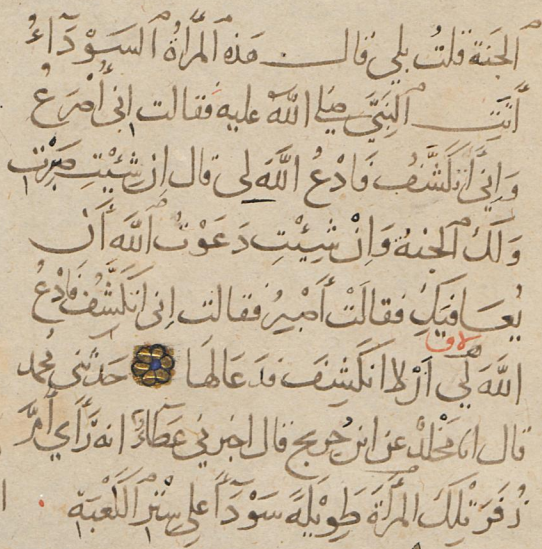 الجنة قلتُ بلي قال هذه المرأةُ السَّوْدَآءُ
أتَتِ النَّبِيَّ صلى اللهُ عليه فقالت إني أُصْرَعُ
وَإِنِّي أتَكَشَّفُ فَادْعُ اللَّهَ لي قال إن شِئْتِ صَبَرْتِ
وَلَكِ الجنةُ وَإِنْ شِئْتِ دَعَوْتُ اللهَ أَن
يُعَافِيَكِ فقالَتْ أَصْبِرُ فقالت إني أتَكَشَّفُ فَادْعُ
اللهَ لي أنْ لا أتكشفَ فدَعَا لَهَا حَدَّثَنِي مُحمد
قال انا مَخْلَدٌ عن ابن جُريج قال اخبرني عَطَآءٌ انه رَأَي أُمَّ
زُفَرَ تِلْكَ المَرْأَةَ طَوِيْلَةً سَوْدَآءَ على سِتْرِ الكَعْبَةِ